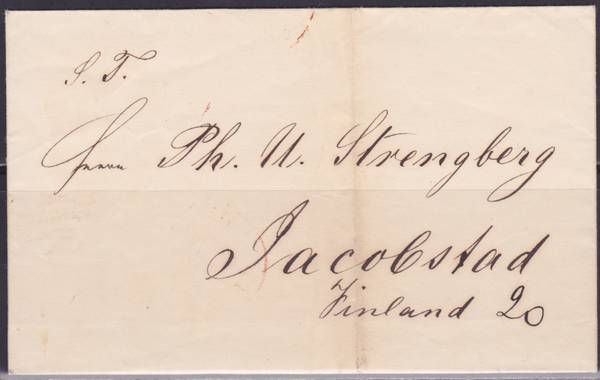 S. T.
Herrn Ph. U. Strengberg
Jacobstad
Finland 20